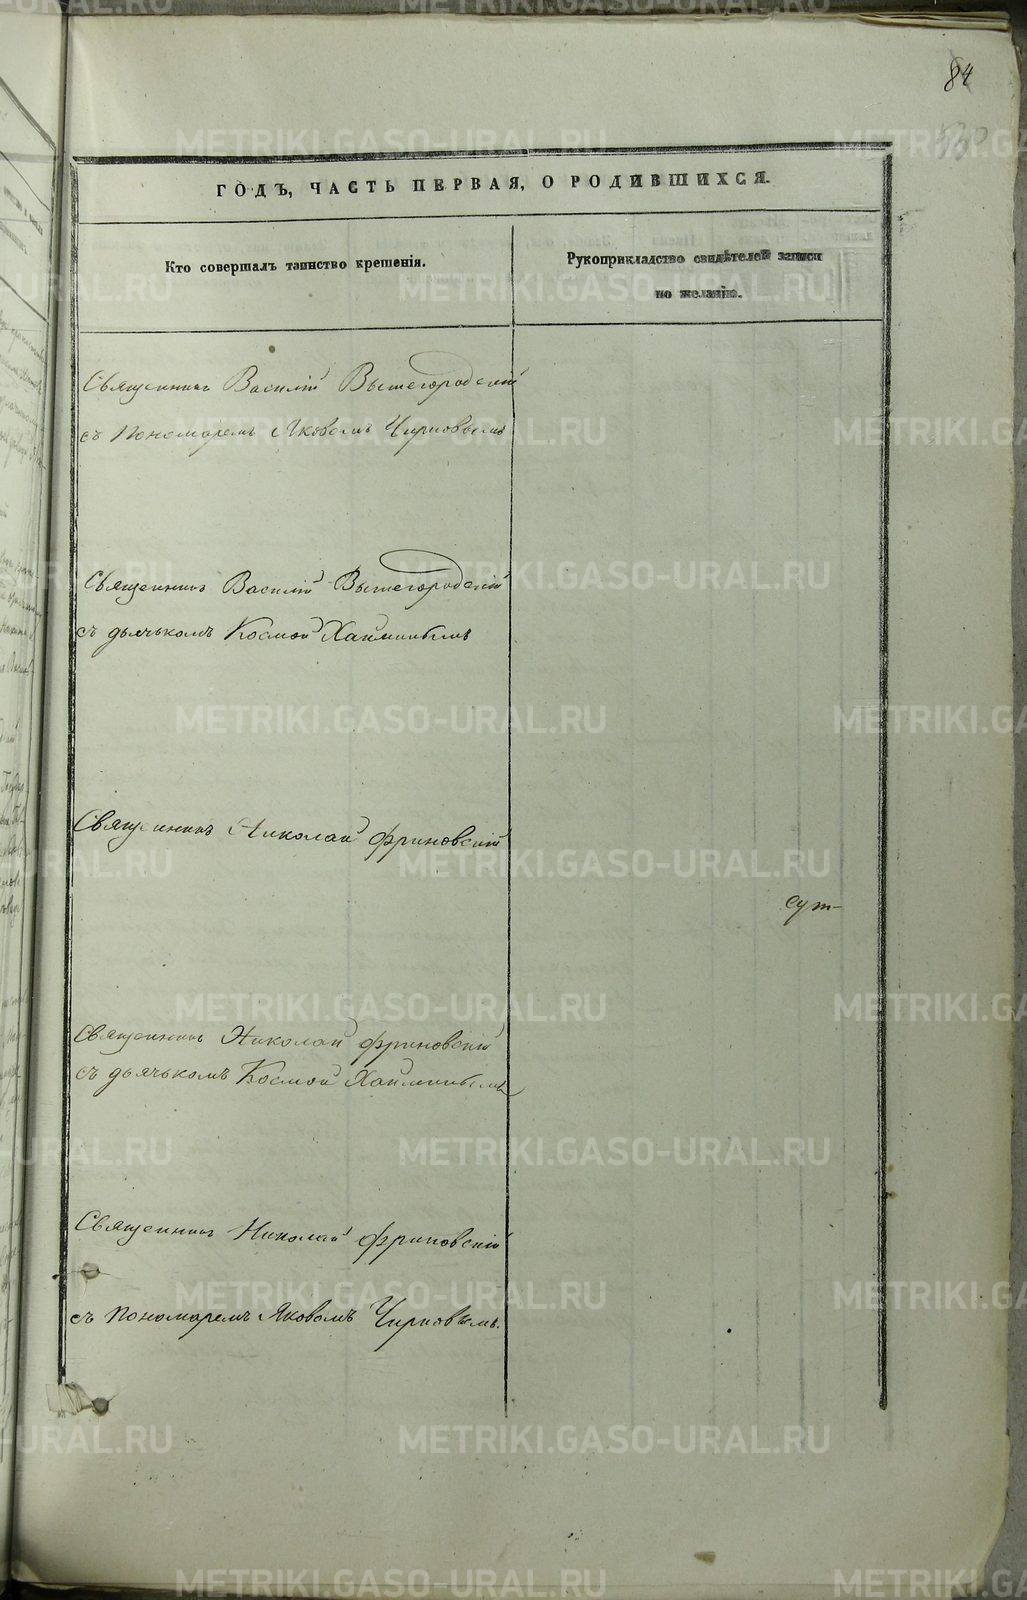 84
ГОДЪ, ЧАСТЬ ПЕРВАЯ, О РОДИВШИХСЯ.
Кто совершалъ таинство крещенія.
Рукоприкладство свидѣтелей записи
по желанію.
Священникъ Василій Вышегородскій
съ пономаремъ Яковомъ Чирковымъ
Священникъ Василій Вышегородскій
съ дьячькомъ Космой
Священникъ Николай Фриновскій
Священникъ Николай Фриновскій
съ дьячькомъ Космой
Священникъ Николай Фриновскій
съ пономаремъ Яковомъ Чирковымъ.
METRIKI.GASO-URAL.RU